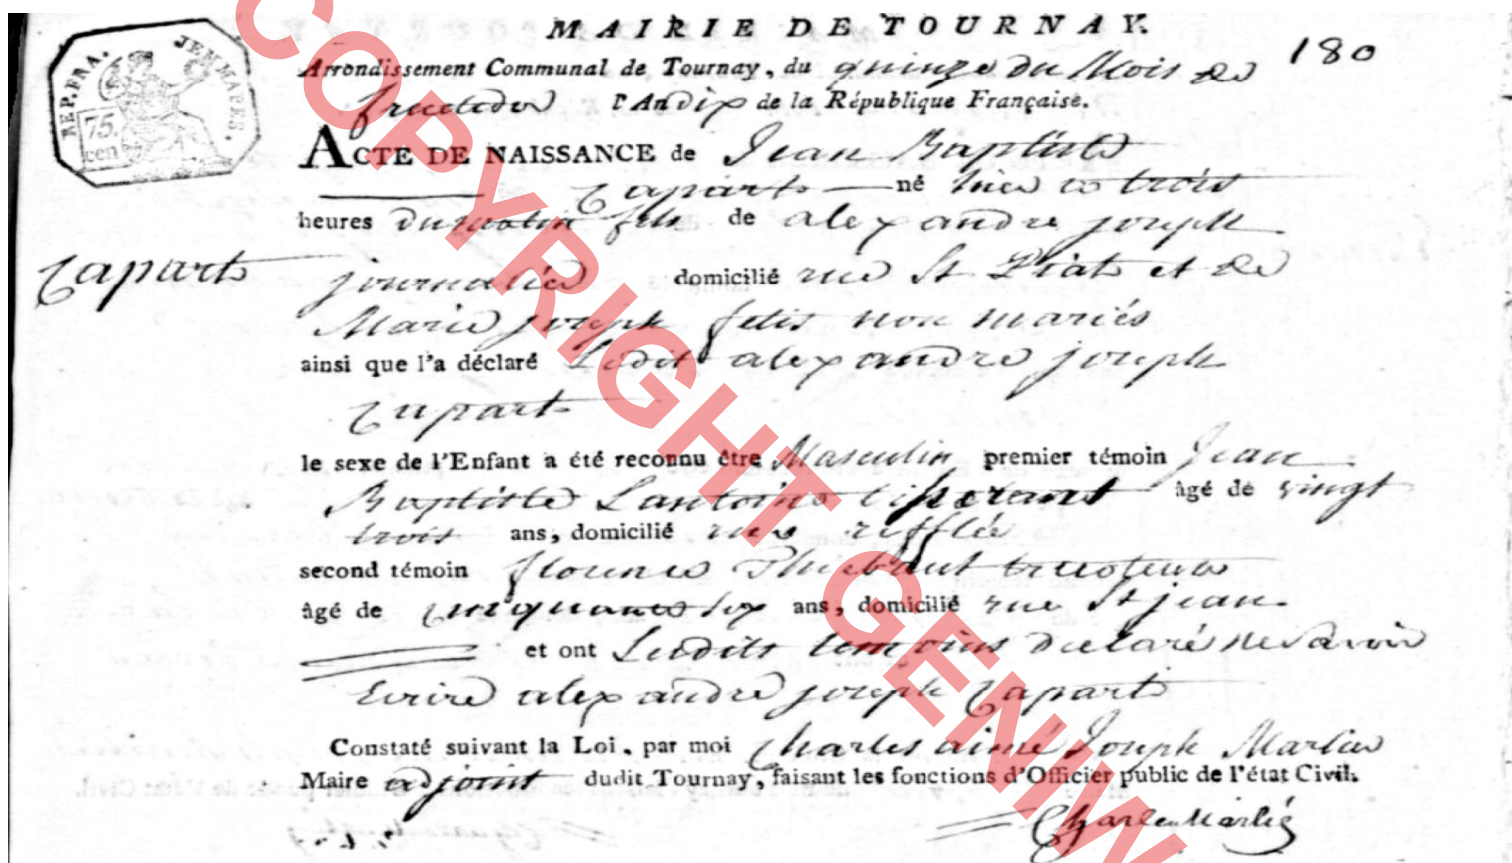 MAIRIE DE TOURNAY.
180
REP. FRA. JEMMAPES.
75.
cen
Arrondissement Communal de Tournay, du quinze du Mois de
fructidor l'An dix de la République Française.
ACTE DE NAISSANCE de Jean Baptiste
Capart né hier à trois
heures du matin fils de alexandre joseph
Capart
journalier domicilié rue St Piat et de
Marie joseph fetis non mariés
ainsi que l'a déclaré Ledit alexandre joseph
Capart
le sexe de l'Enfant a été reconnu être Masculin premier témoin Jean
Baptiste Lantoine tisserant âgé de vingt
trois ans, domicilié rue
second témoin florence Thiebaut tricoteuse
âgé de cinquante six ans, domicilié rue St jean
et ont Lesdits temoins declaré ne savoir
Ecrire alexandre joseph Capart
Constaté suivant la Loi, par moi Charles aimé Joseph Marlier
Maire adjoint dudit Tournay, faisant les fonctions d'Officier public de l'état Civil.
Charles Marlié
COPYRIGHT GENIW